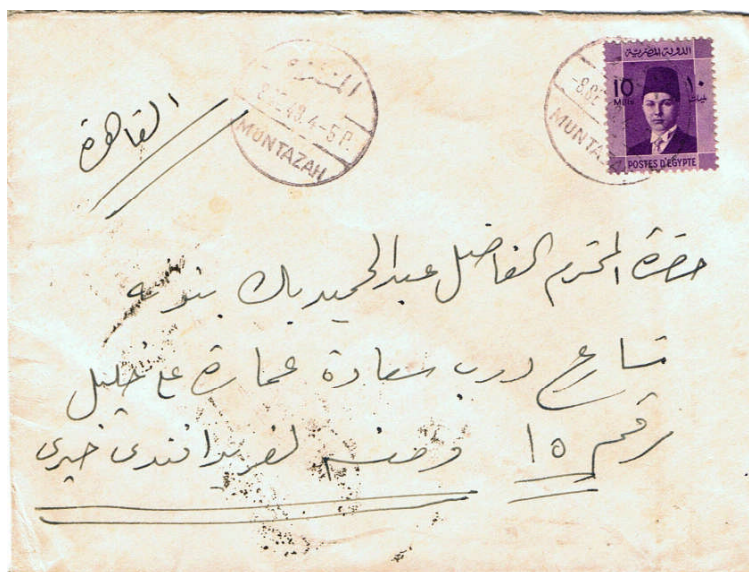 المنتزه
8. 48.4-5P.
MUNTAZAH
-8.
MUNTAZ
الدولة المصرية
15 ١٥
Mills مليمات
POSTES D'EGYPTE
القاهرة
حضرة المحترم الفاضل عبدالحميد بك بنونه
شارع درب سعادة عمارة على خليل
رقم ١٥ ومنه لفريد افندى خيرى